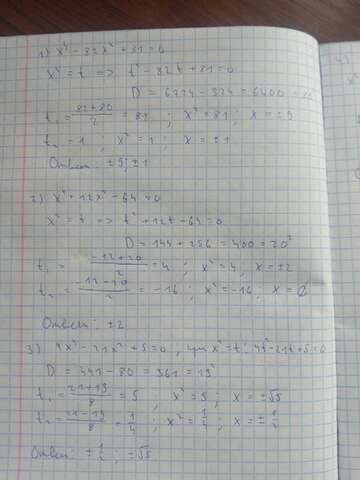 1) x⁴ - 82x² + 81 = 0
x² = t => t² - 82t + 81 = 0
D = 6724 - 324 = 6400 =
t₁ = (82+80)/2 = 81 ; x² = 81 ; x = ±9
t₂ = 1 ; x² = 1 ; x = ±1
Ответ: ±9; ±1
2) x⁴ + 12x² - 64 = 0
x² = t => t² + 12t - 64 = 0
D = 144 + 256 = 400 = 20²
t₁ = (-12+20)/2 = 4 ; x² = 4 ; x = ±2
t₂ = (-12-20)/2 = -16 ; x² = -16 ; x = ∅
Ответ: ±2
3) 4x⁴ - 21x² + 5 = 0 , x² = t : 4t² - 21t + 5 = 0
D = 441 - 80 = 361 = 19²
t₁ = (21+19)/8 = 5 ; x² = 5 ; x = ±√5
t₂ = (21-19)/8 = 1/4 ; x² = 1/4 ; x = ±1/2
Ответ: ±1/2 ; ±√5
4)